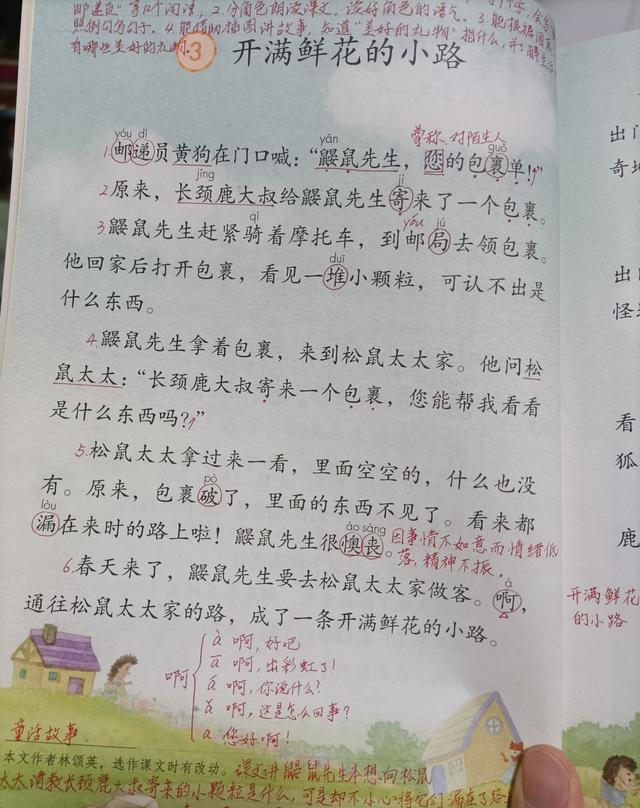 邮递员"等12个词语，2.分角色朗读课文，读好角色的语气。3.能根据图画
照例句写句子。4.能借助插图讲故事，知道"美好的礼物"指什么，并了解生活
有哪些美好的礼物。
3 开满鲜花的小路
yóu dì yǎn 尊称、对陌生人 guǒ
1.邮递员黄狗在门口喊：“鼹鼠先生，您的包裹单！”
jǐng jì
2原来，长颈鹿大叔给鼹鼠先生寄来了一个包裹。
qí yóu jú
3鼹鼠先生赶紧骑着摩托车，到邮局去领包裹。
duī
他回家后打开包裹，看见一堆小颗粒，可认不出是
什么东西。
4.鼹鼠先生拿着包裹，来到松鼠太太家。他问松
鼠太太：“长颈鹿大叔寄来一个包裹，您能帮我看看
是什么东西吗？”
5.松鼠太太拿过来一看，里面空空的，什么也没
pò
有。原来，包裹破了，里面的东西不见了。看来都
lòu ào sàng
漏在来时的路上啦！鼹鼠先生很懊丧。因事情不如意而情绪低
落，精神不振。
6.春天来了，鼹鼠先生要去松鼠太太家做客。啊，
à
通往松鼠太太家的路，成了一条开满鲜花的小路。
啊
à 啊，好吧
ā 啊，出彩虹了！
á 啊，你说什么？
ǎ 啊，这是怎么回事？
a 您好啊！
童话故事
本文作者林颂英，选作课文时有改动。
课文讲鼹鼠先生本想向松鼠
太太请教长颈鹿大叔寄来的小颗粒是什么，可是却不小心将它们漏在了路
出门
奇地
出
怪
看
狐
鹿
开满鲜花
的小路